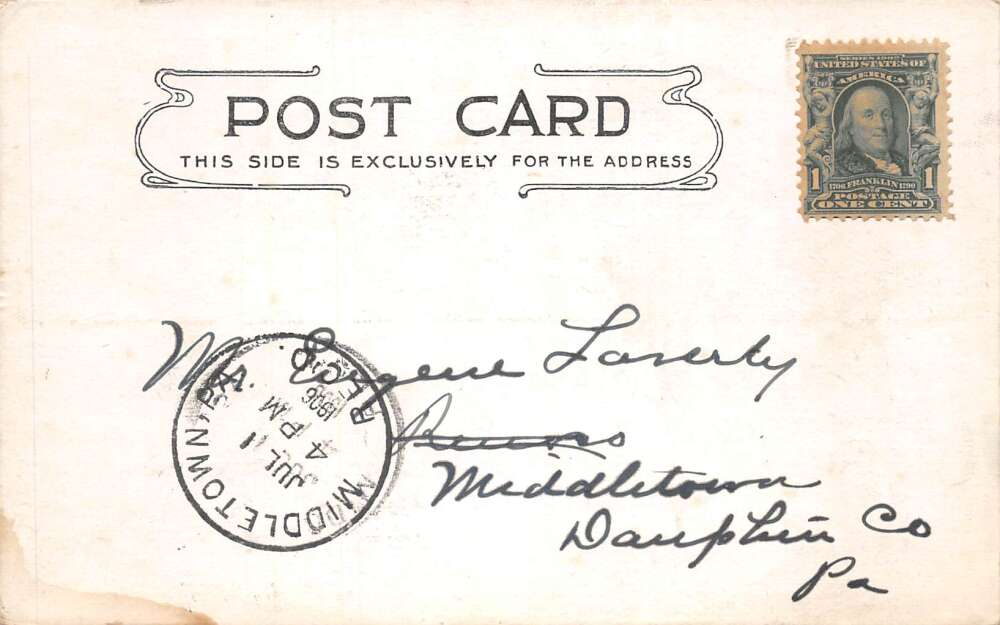 POST CARD
THIS SIDE IS EXCLUSIVELY FOR THE ADDRESS
SERIES 1902
UNITED STATES OF
AMERICA
1 1706 FRANKLIN 1790 1
POSTAGE
ONE CENT
Mr. Eugene Laverty
Middletown
Dauphin Co
Pa
MIDDLETOWN, PA.
JUL 11
4 PM
1906
REC'D.